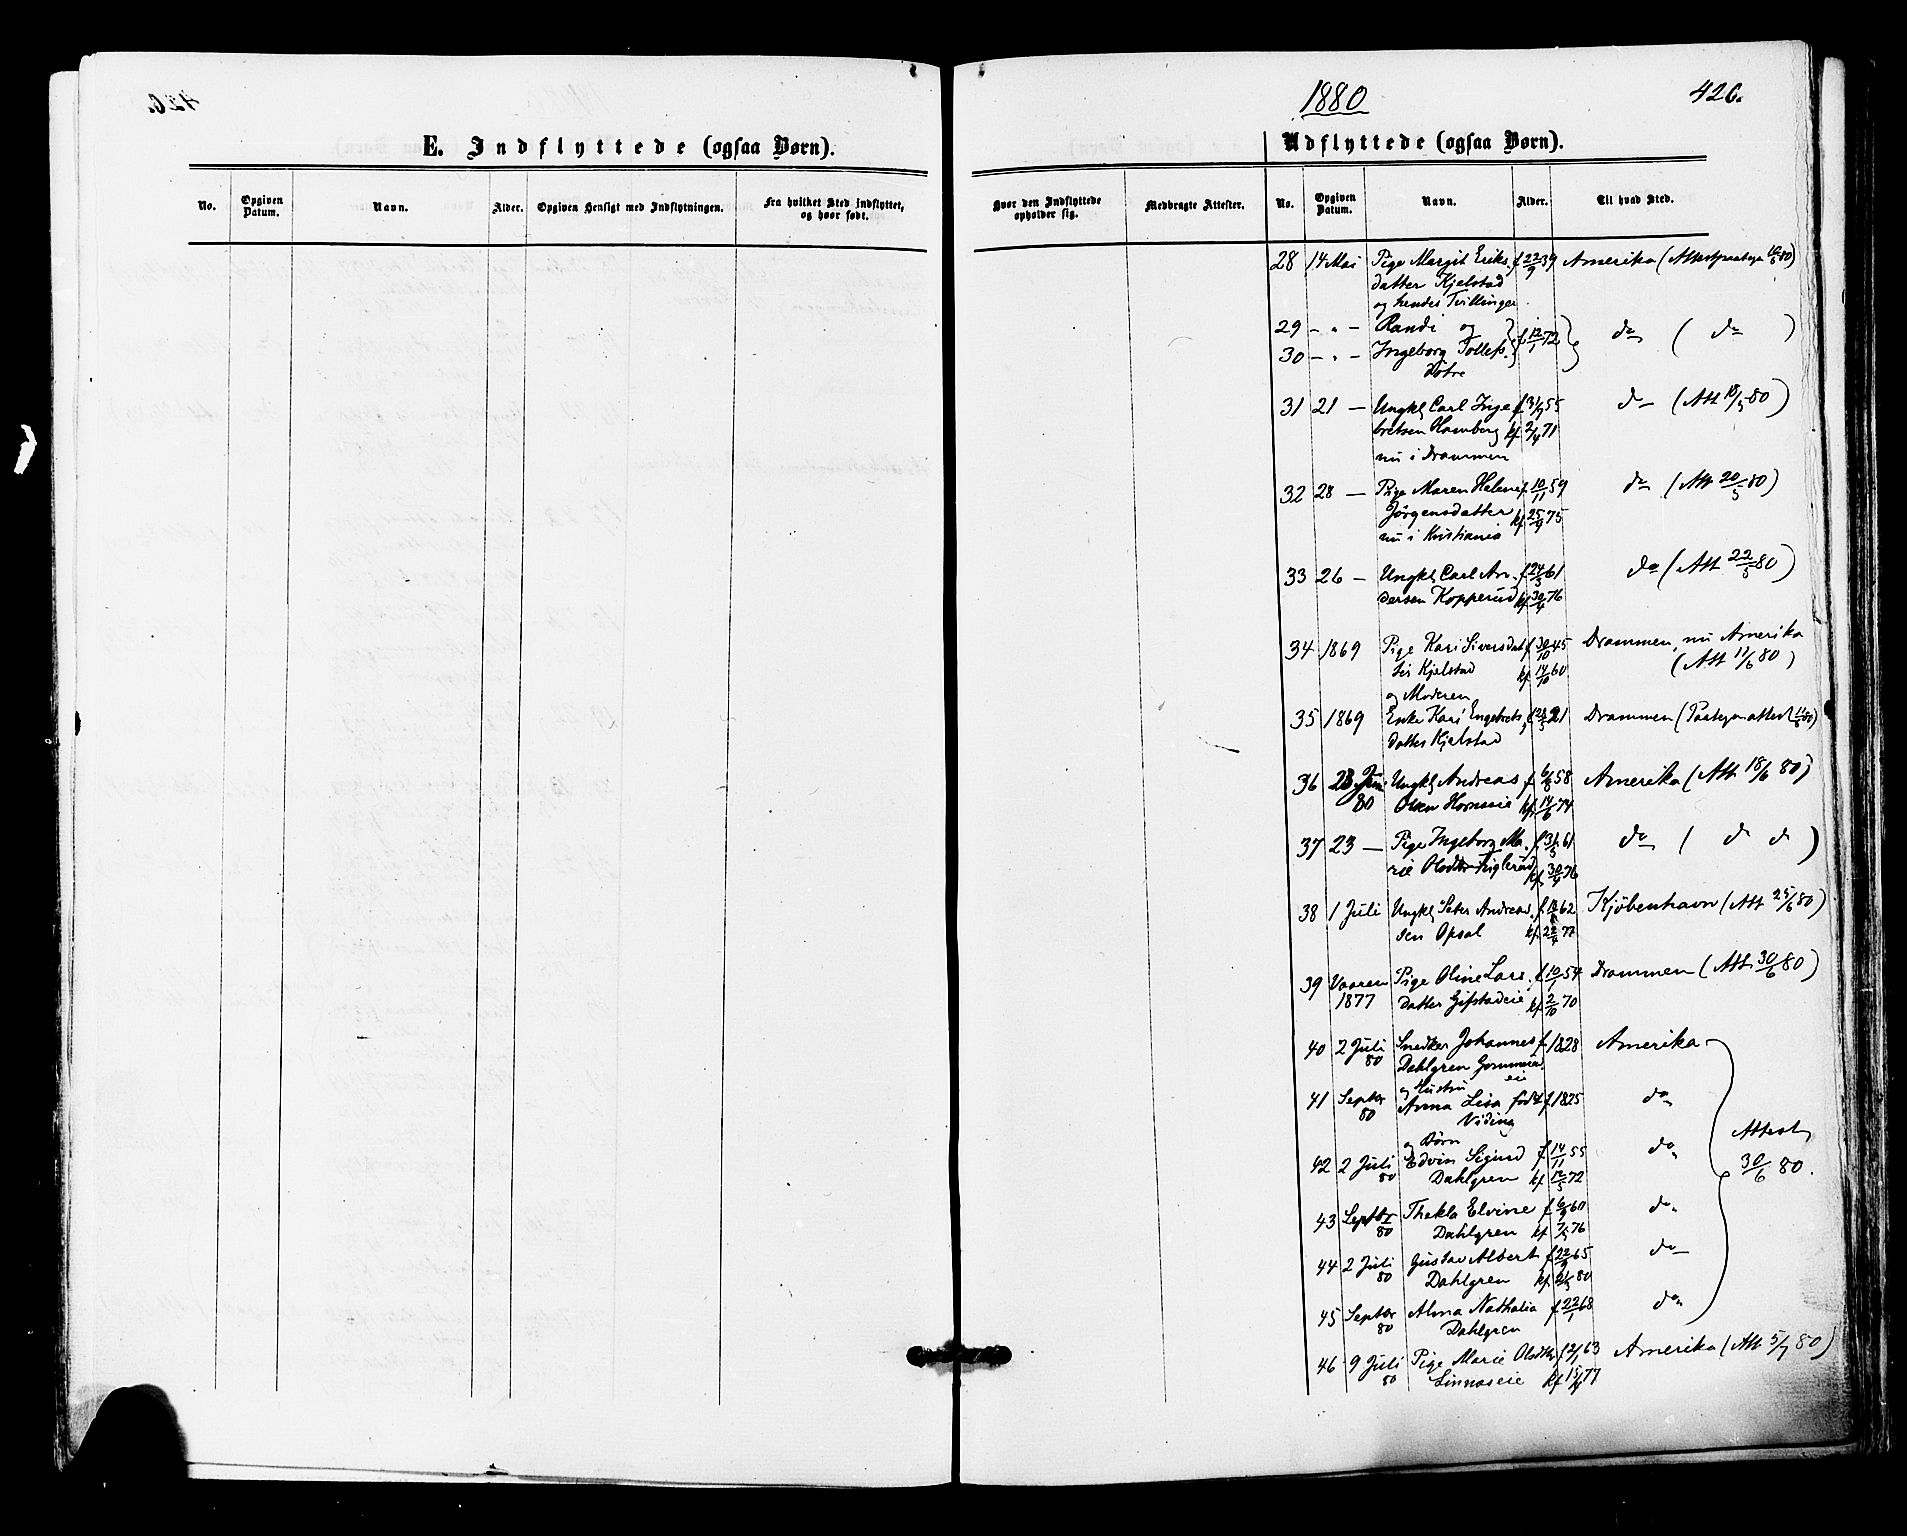 1880
426.
E. Indflyttede (ogsaa Børn).
Udflyttede (ogsaa Børn).
No. Opgiven Datum. Navn. Alder. Opgiven Hensigt med Indflytningen. Fra hvilket Sted indflyttet, og hvor født.
Hvor den Indflyttede opholder sig. Medbragte Attester. No. Opgiven Datum. Navn. Alder. Til hvad Sted.
28 14 Mai Pige Margit Eriks- f 22/9 39 Amerika (
datter Kjelstad
og hendes Tvillinger
29 - " - Randi og
30 - " - Ingeborg Tollefs- f 12/1 72 do ( do )
Døtre
31 21 — Ungkl Carl Inge- f 31/7 55 do (Att 18/5 80)
bretsen Hamberg kf 2/4 71
nu i Drammen
32 28 — Pige Maren Helene f 10/11 59 do (Att 20/5 80)
Jørgensdatter kf 25/4 75
nu i Kristiania
33 26 — Ungkl Carl An- f 24/5 61 do (Att 22/5 80)
dersen Kopperud kf 30/4 76
34 1869 Pige Kari Siversdat- f 30/10 45 Drammen, nu Amerika
ter Kjelstad kf 14/10 60 (Att 11/6 80)
og Moderen
35 1869 Enke Kari Engebrets- Drammen (
datter Kjelstad
36 23 Juni Ungkl Andreas f 6/8 58 Amerika (Att 18/6 80)
80 Olsen Hornseie kf 14/6 74
37 23 — Pige Ingeborg Ma- f 31/5 61 do ( do do )
rie Olsdtr kf 30/4 76
38 1 Juli Ungkl Peter Andreas- 62 Kjöbenhavn (Att 25/6 80)
sen Opsal kf 22/4 77
39 Vaaren Pige Oline Lars- f 10/1 54 Drammen (Att 30/6 80)
1877 datter Gifstadeie kf 2/10 70
40 2 Juli Snedker Johannes f 1828 Amerika
80 Dahlgren
og Hustru
41 Septbr Anna Lisa født f 1825 do
80 Viding
og Børn
42 2 Juli Edvin Sigurd f 14/11 55 do Attest
80 Dahlgren kf 12/5 72 30/6 80.
43 Septbr Thekla Elvine f 6/9 60 do
80 Dahlgren kf 7/5 76
44 2 Juli Gustav Albert f 22/9 65 do
80 Dahlgren kf 80
45 Septbr Alma Nathalia f 22/1 68 do
80 Dahlgren
46 9 Juli Pige Marie Olsdtr f 2/1 63 Amerika (Att 5/7 80)
80 Linnaseie kf 15/4 77